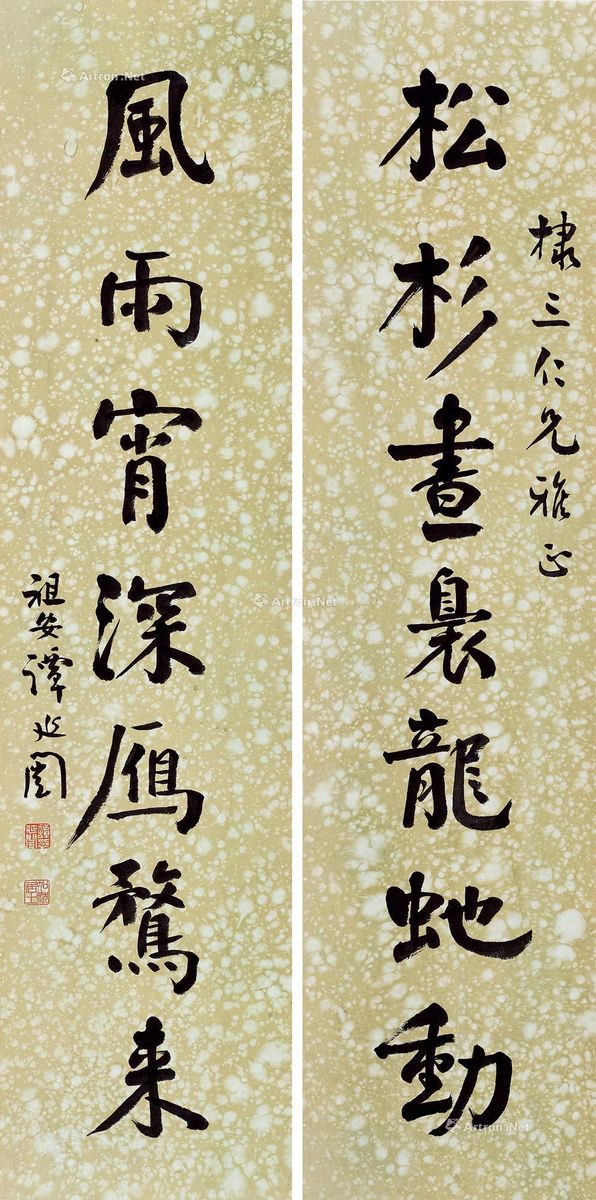 松杉晝裊龍蛇動
棣三仁兄雅正
風雨宵深鴈鶩来
祖安譚延闓
Artron.Net
Artron.Net
Artron.Net